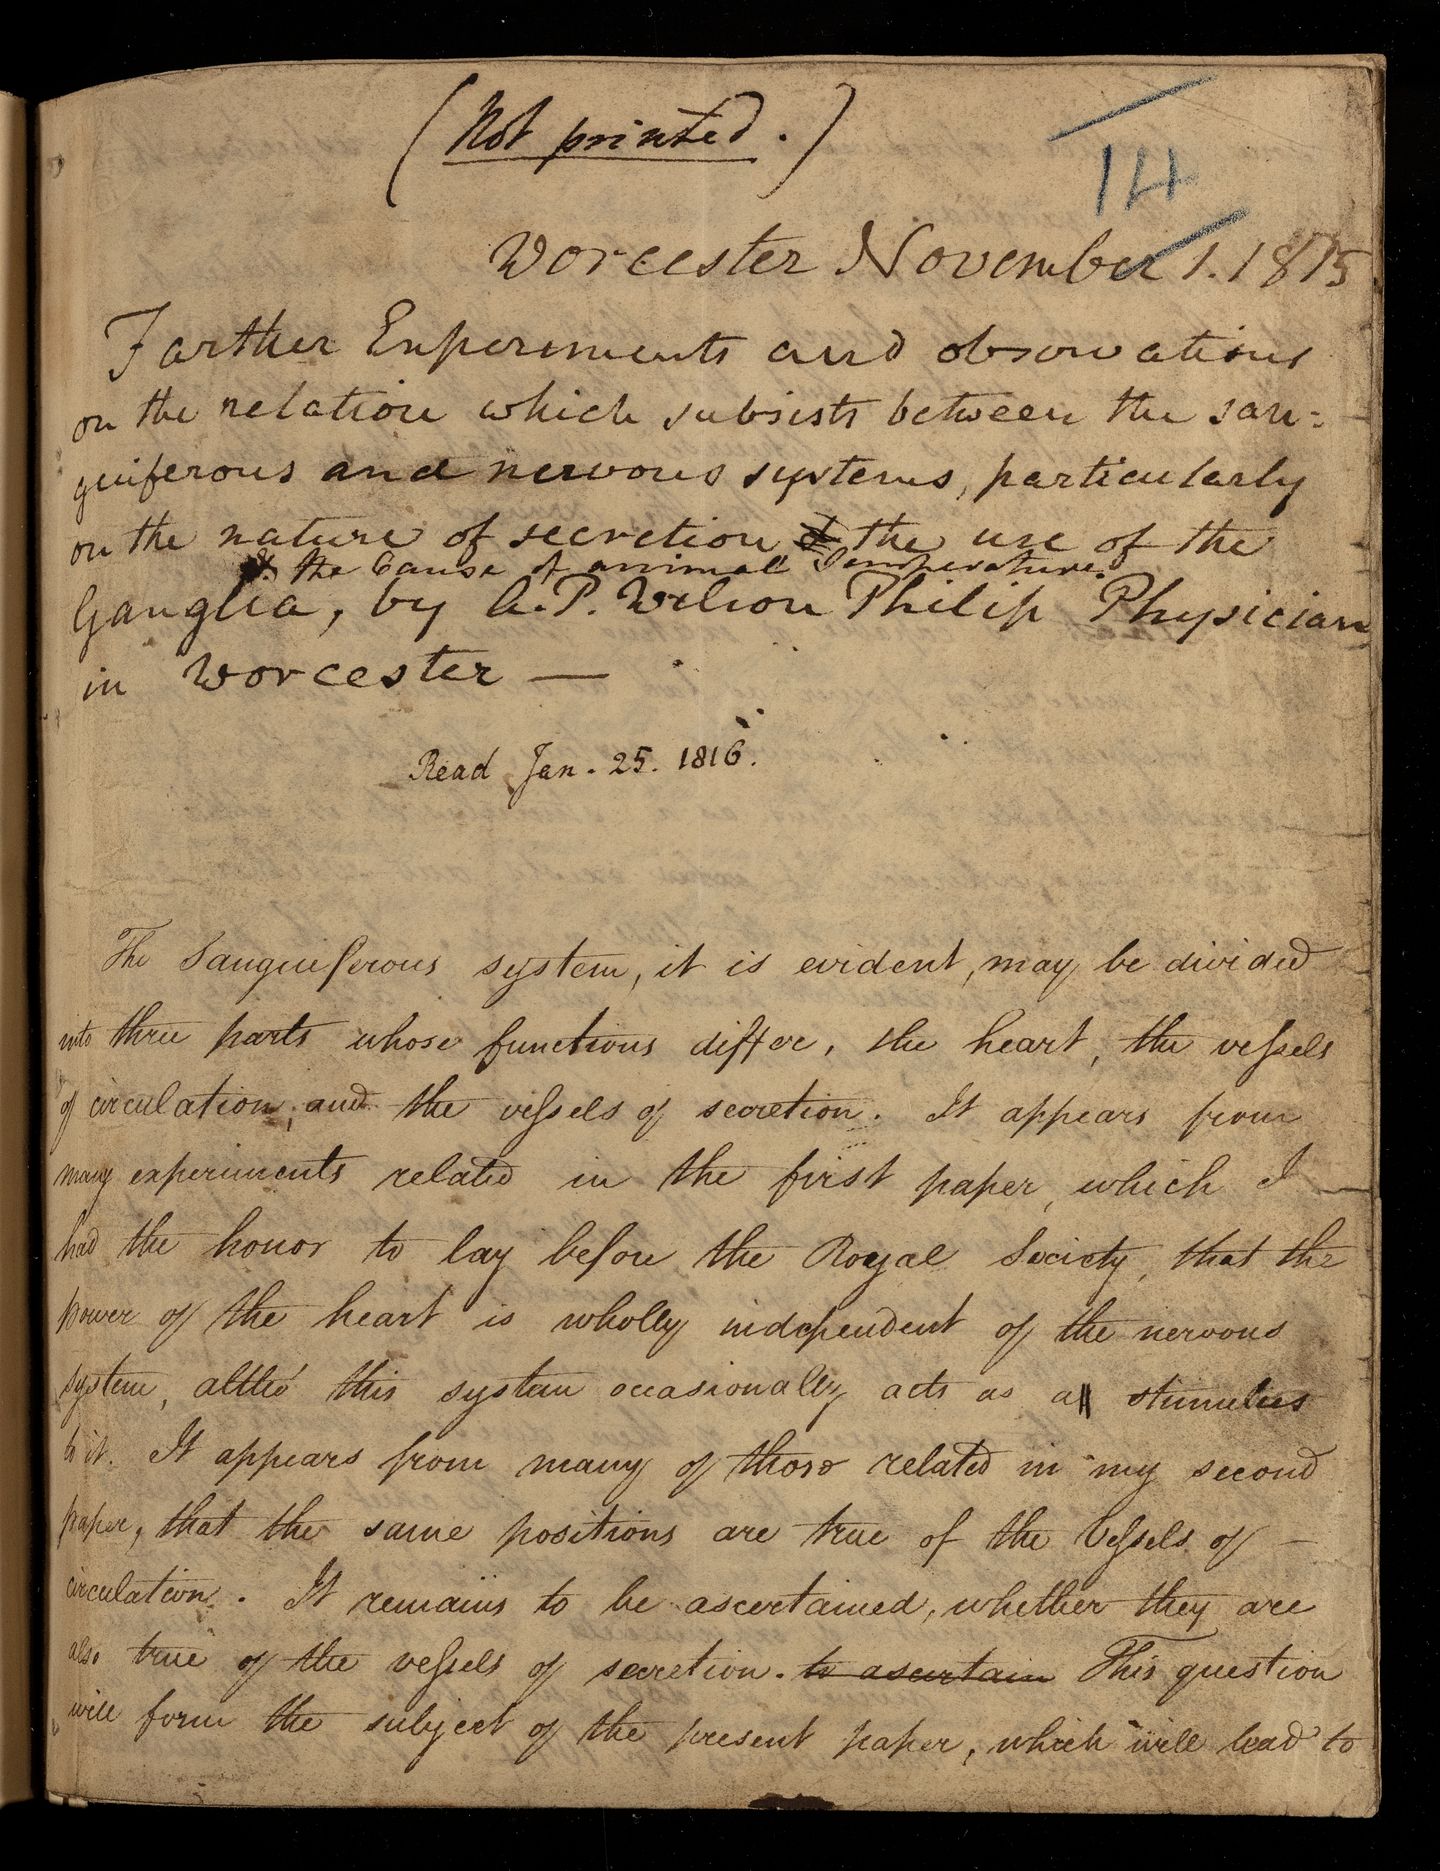 (Not printed.)
14
Worcester November 1. 1815
Farther Experiments and observations
on the relation which subsists between the san=
guiferous and nervous systems, particularly
on the nature of secretion & the use of the
& the Cause of animal Temperature.
Ganglia, by A. P. Wilson Philip Physician
in Worcester —
Read Jan. 25. 1816.
The Sanguiferous system, it is evident, may be divided
into three parts whose functions differ, the heart, the vessels
of circulation, and the vessels of secretion. It appears from
many experiments related in the first paper, which I
had the honor to lay before the Royal Society, that the
power of the heart is wholly independent of the nervous
system, altho' this system occasionally acts as a stimulus
to it. It appears from many of those related in my second
paper, that the same positions are true of the Vessels of —
circulation. It remains to be ascertained, whether they are
also true of the vessels of secretion. to ascertain This question
will form the subject of the present paper, which will lead to